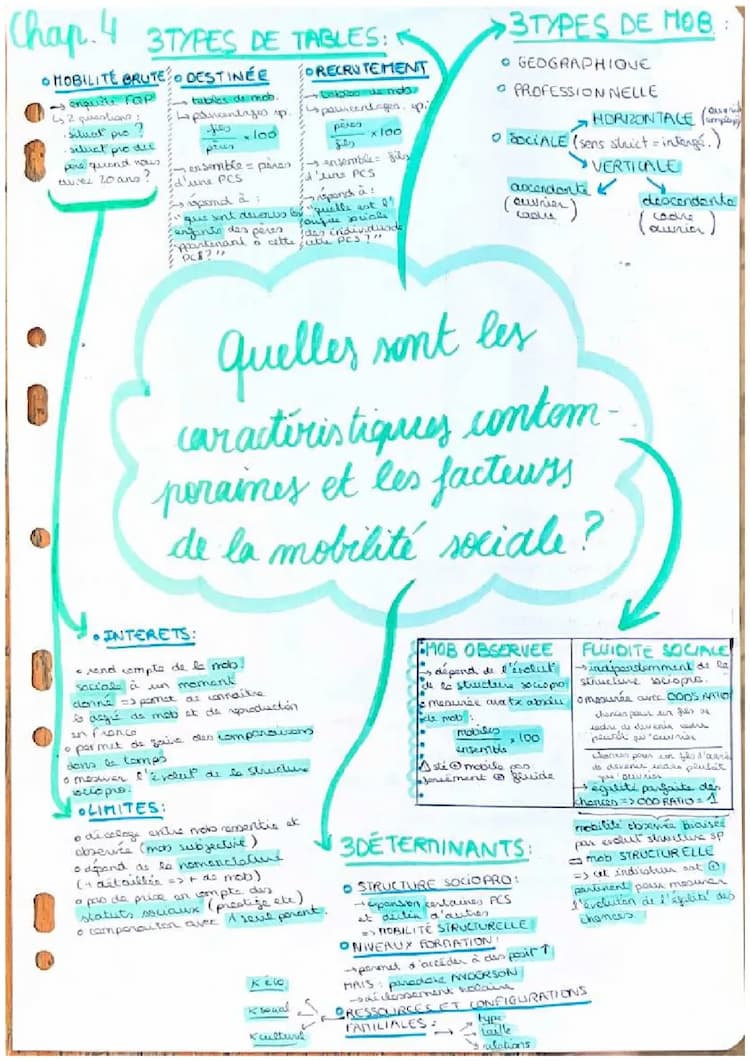 Chap. 4
3 TYPES DE TABLES:
MOBILITÉ BRUTE
→ enquête FQP
↳ 2 questions:
. situat pro ?
. situat pro de
père quand vous
avez 20 ans ?
DESTINÉE
→ tables de mob.
↳ pourcentages sp.
fils
pères
×100
→ ensemble = pères
d'une PCS
→ répond à :
"que sont devenus les
enfants des pères
appartenant à cette
PCS ?"
RECRUTEMENT
→ tables de mob
↳ pourcentages sp:
pères
fils
×100
→ ensemble = fils
d'1 PCS
→ répond à :
"quelle est l'
origine sociale
des individus de
cette PCS ?"
3 TYPES DE MOB :
GEOGRAPHIQUE
PROFESSIONNELLE
SOCIALE (sens strict = intergé.)
HORIZONTALE
VERTICALE
ascendante
(ouvrier
cadre)
descendante
(cadre
ouvrier)
Quelles sont les
caractéristiques contem-
poraines et les facteurs
de la mobilité sociale ?
INTERETS:
rend compte de la mob.
sociale à un moment
donné => permet de connaître
le degré de mob et de reproduction
en France
permet de faire des comparaisons
dans le temps
mesurer l'évolut° de la structure
sociopro.
LIMITES:
décalage entre mob ressentie et
observée (mob subjective)
dépend de la nomenclature
(+ détaillée => + de mob)
pas de prise en compte des
statuts sociaux (prestige etc)
comparaison avec 1 seul parent.
MOB OBSERVEE
→ dépend de l'évolut°
de la structure sociopro.
mesurée av tx absolu
de mob :
mobiles
ensemble
× 100
⚠ sté ⊕ mobile pas
forcément ⊕ fluide
FLUIDITÉ SOCIALE
→ indépendamment de la
structure sociopro.
mesurée avec ODDS RATIO
chances pour un fils de
cadre de devenir cadre
plutôt qu'ouvrier
chances pour un fils d'ouvrier
de devenir cadre plutôt
qu'ouvrier
→ égalité parfaite des
chances => ODD RATIO = 1
mobilité observée biaisée
par evolut structure SP
=> mob STRUCTURELLE
=> cet indicateur est ⊕
pertinent pour mesurer
l'évolution de l'égalité des
chances
3 DÉTERMINANTS:
STRUCTURE SOCIOPRO:
→ expansion certaines PCS
et déclin d'autres
=> MOBILITÉ STRUCTURELLE
NIVEAUX FORMATION:
→ permet d'accéder à des posit° ↑
MAIS : paradoxe ANDERSON
→ déclassement scolaire
RESSOURCES ET CONFIGURATIONS
FAMILIALES :
K éco
K social
K culturel
type
taille
relations